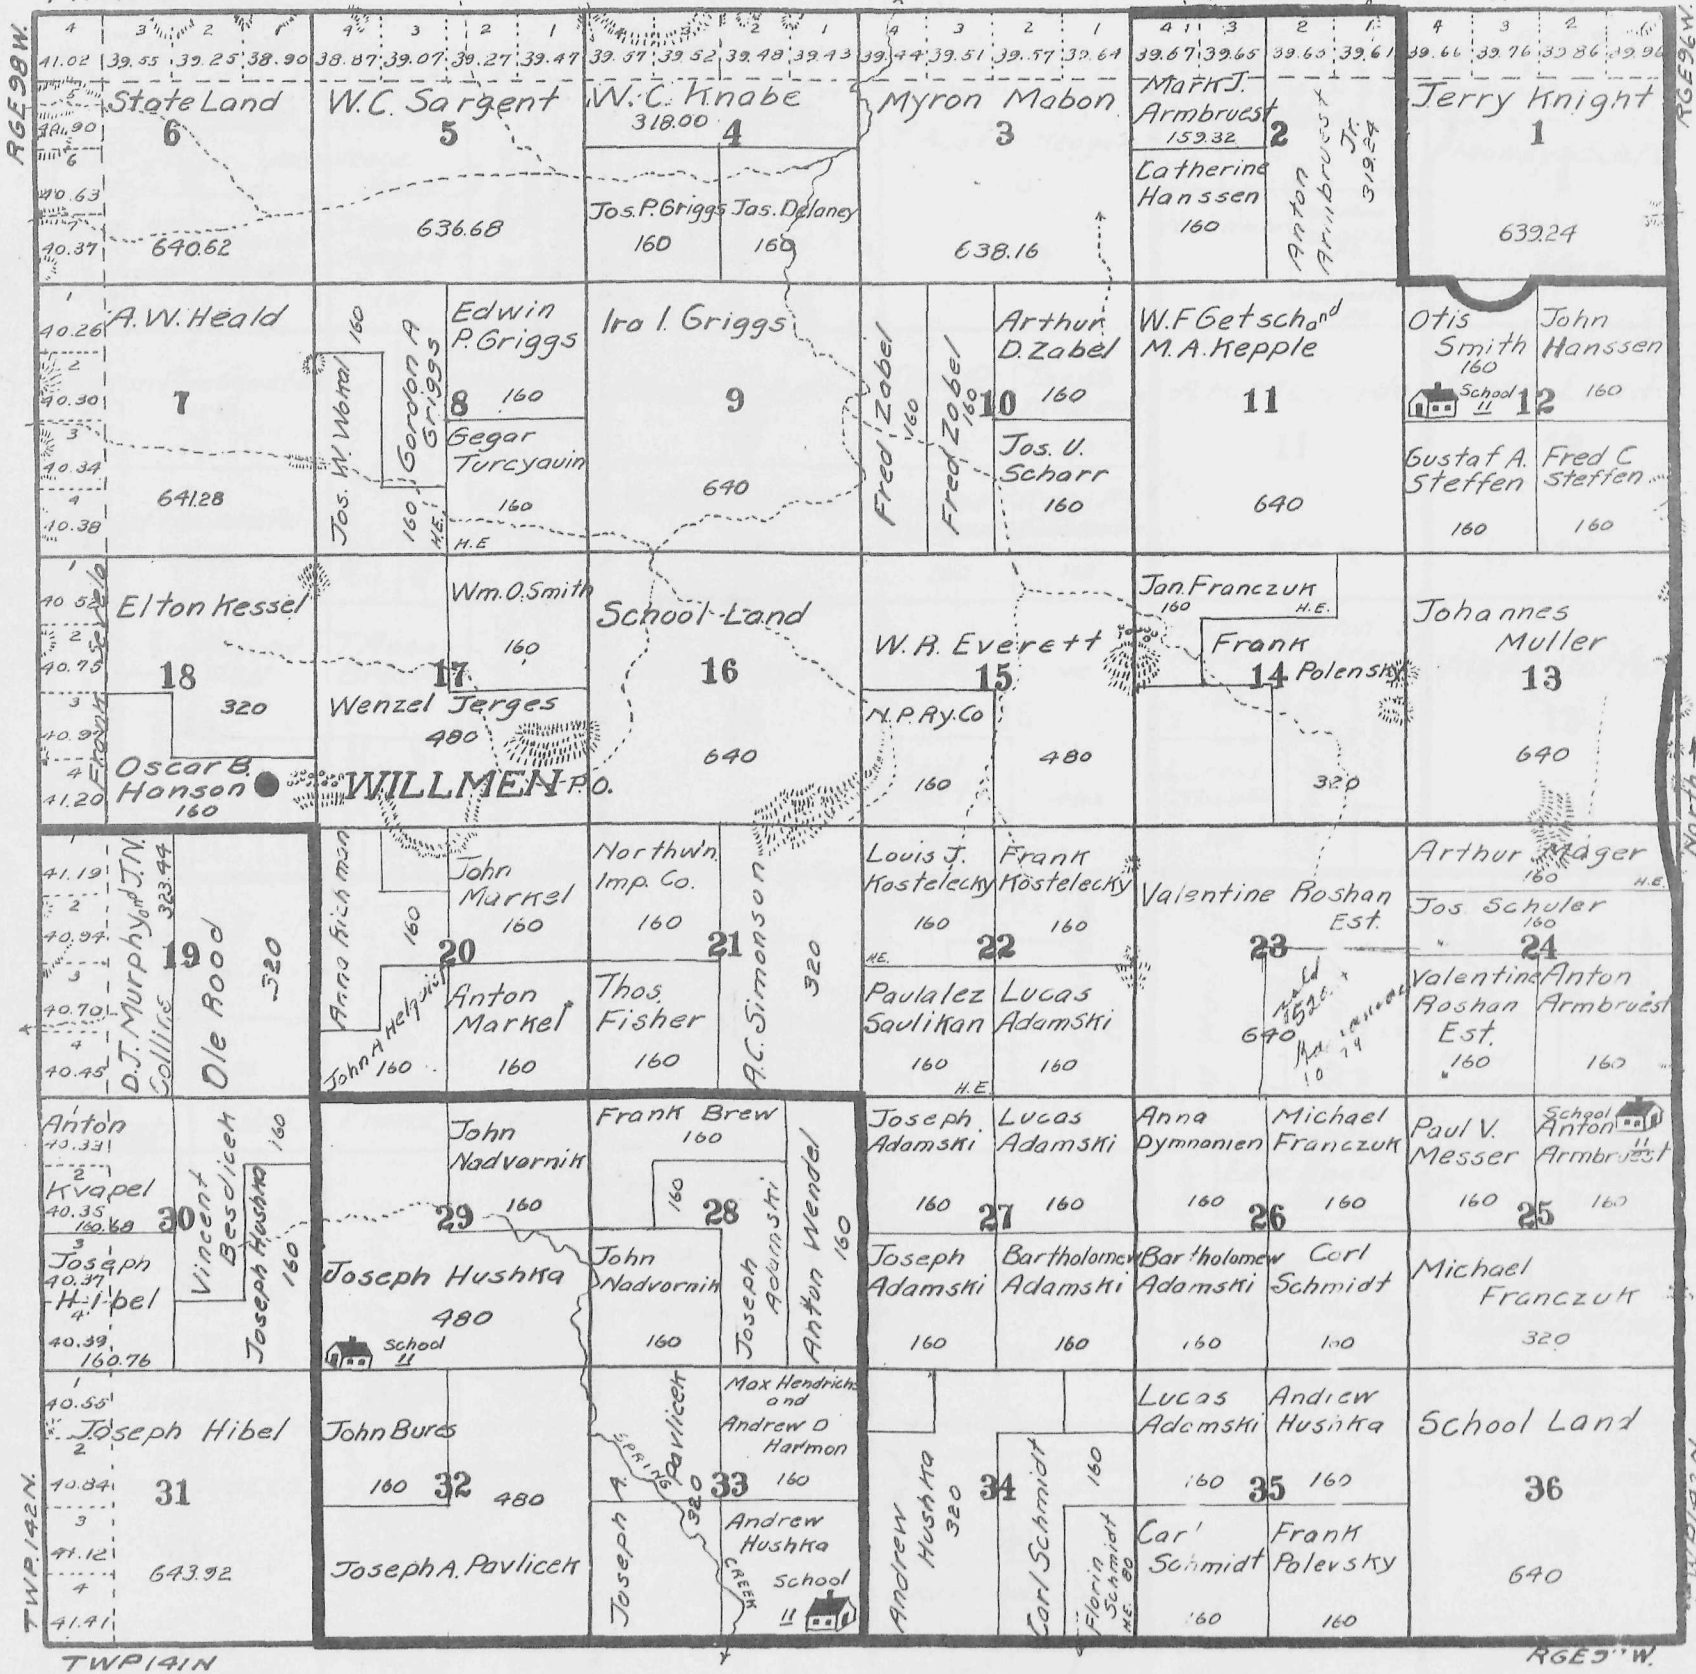 RGE 98 W.
RGE 96 W.
4 3 2 1
41.02 39.55 39.25 38.90
State Land
6
5
40.90
6
40.63
7
40.37
640.62
4 3 2 1
38.87 39.07 39.27 39.47
W.C. Sargent
5
636.68
39.57 39.52 39.48 39.43
2 1
W.C. Knabe
318.00
4
Jos. P. Griggs
160
Jas. Delaney
160
4 3 2 1
39.44 39.51 39.57 39.64
Myron Mabon
3
638.16
4 3 2 1
39.67 39.65 39.63 39.61
Mark J.
Armbruest
159.32
2
Catherine
Hanssen
160
Anton
Armbruest
Jr.
319.24
4 3 2
39.66 39.76 39.86 39.96
Jerry Knight
1
639.24
1
40.26
2
40.30
3
40.34
4
40.38
A.W. Heald
7
641.28
Jos. W. Wonal
160
Gordon A
Griggs
160
H.E.
8
Edwin
P. Griggs
160
Gegar
Turcyauin
160
H.E
Ira I. Griggs
9
640
Fred Zabel
160
Fred Zabel
160
10
Arthur
D. Zabel
160
Jos. U.
Scharr
160
W.F Getsch and
M.A. Kepple
11
640
Otis
Smith
160
School
11
12
John
Hanssen
160
Gustaf A.
Steffen
160
Fred C
Steffen
160
1
40.52
2
40.75
3
40.97
4
41.20
Frank
Elton Kessel
18
320
Oscar B.
Hanson
160
WILLMEN P.O.
Wm. O. Smith
160
17
Wenzel Jerges
480
School Land
16
640
W.R. Everett
15
480
N.P. Ry. Co
160
Jan. Franczuk
160
H.E.
Frank
Polensky
14
320
Johannes
Muller
13
640
North
1
41.19
2
40.94
3
40.70
4
40.45
D.J. Murphy and J.N.
Collins
323.44
19
Ole Rood
320
Anna Richman
160
John A Helquist
160
20
John
Markel
160
Anton
Markel
160
Northw'n
Imp. Co.
160
21
Thos.
Fisher
160
A.C. Simonson
320
Louis J.
Kostelecky
160
H.E.
22
Frank
Kostelecky
160
Paulalez
Saulikan
160
H.E.
Lucas
Adamski
160
Valentine Roshan
Est.
23
sold
640
Arthur Mager
160
H.E.
Jos Schuler
160
24
Valentine
Roshan
Est.
160
Anton
Armbruest
160
Anton
40.33
2
Kvapel
40.35
160.68
30
3
Joseph
40.37
Hibel
4
40.39
160.76
Vincent
Besdicek
160
Joseph Hushka
160
29
John
Nadvornik
160
Joseph Hushka
480
School
11
Frank Brew
160
28
160
John
Nadvornik
160
Joseph
Adamski
Anton Wendel
160
Joseph
Adamski
160
27
Lucas
Adamski
160
Joseph
Adamski
160
Bartholomew
Adamski
160
Anna
Dymnanien
160
26
Michael
Franczuk
160
Bartholomew
Adamski
160
Carl
Schmidt
160
Paul V.
Messer
160
25
School
Anton
11
Armbruest
160
Michael
Franczuk
320
1
40.55
2
40.84
3
41.12
4
41.41
Joseph Hibel
31
643.92
John Bures
160
32
480
Joseph A. Pavlicek
Joseph A. Pavlicek
320
SPRING
CREEK
33
Max Hendrichs
and
Andrew D
Harmon
160
Andrew
Hushka
School
11
Andrew
Hushka
320
34
Carl Schmidt
160
Florin
Schmidt
H.E. 80
Lucas
Adamski
160
35
Andrew
Hushka
160
Carl
Schmidt
160
Frank
Polevsky
160
School Land
36
640
TWP. 142 N.
TWP 141 N